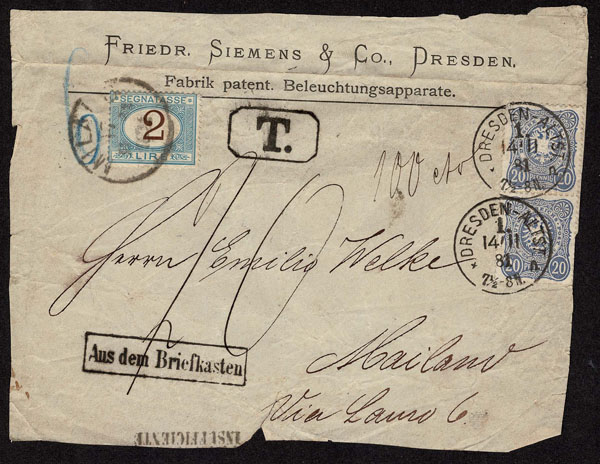 FRIEDR. SIEMENS & CO., DRESDEN.
Fabrik patent. Beleuchtungsapparate.
SEGNATASSE
2
LIRE
MILA
T.
100 cts
DRESDEN-ALTST.
1.
14/11
81
7½-8N.
n.
20 20
DRESDEN-ALTST.
1.
14/11
81
7½-8N.
n.
20 20
Herrn Emilio Welke
Aus dem Briefkasten
Mailand
Via Lauro 6.
INSUFFICIENTE